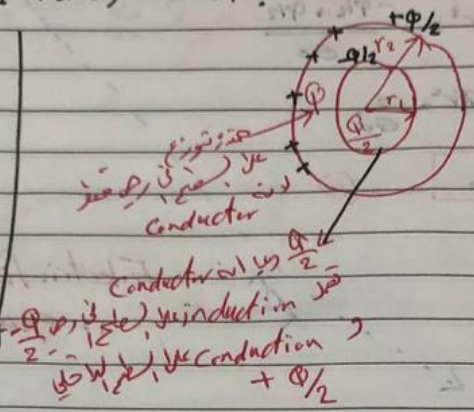 +Q/2
-Q/2
r₂
Q
r₁
Q/2
هتتوزع
على السطح الخارجي فقط
لانه
Conductor
Q/2 وبما انه Conductor
induction على السطح الداخلي -Q/2
و conduction على السطح الخارجي
+ Q/2